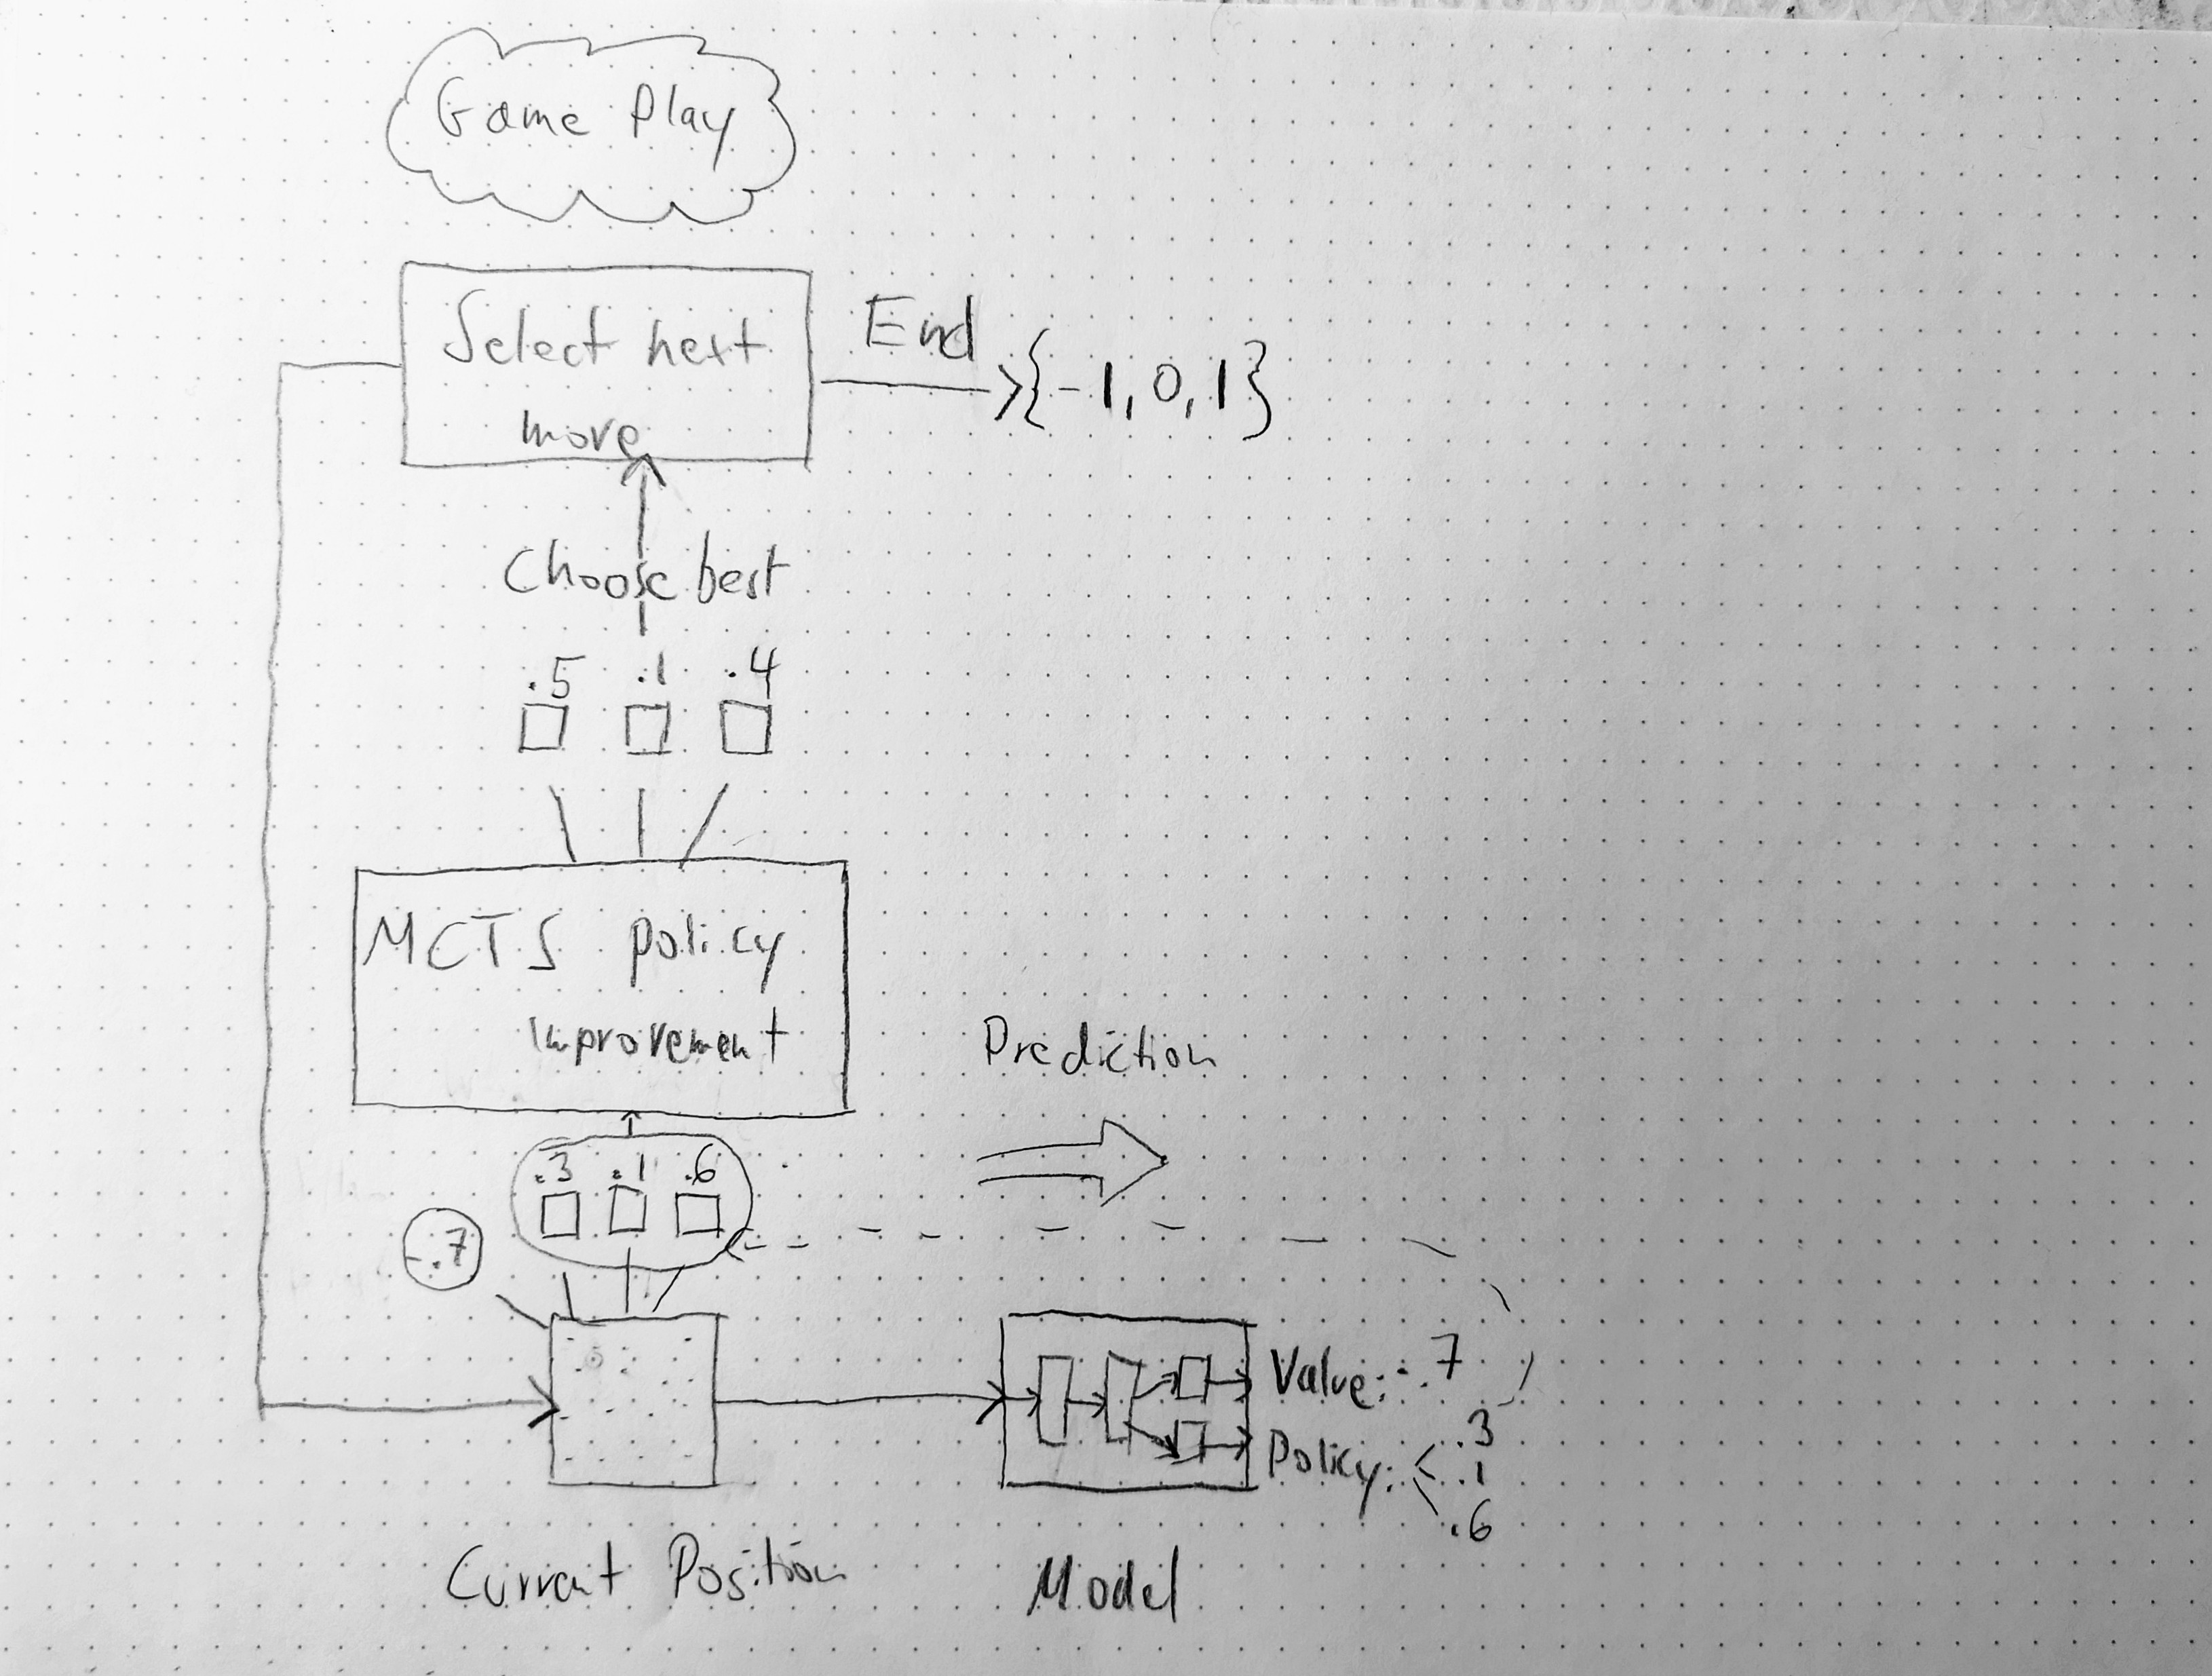 Game Play
Select next
move
End
{-1, 0, 1}
Choose best
.5 .1 .4
MCTS policy
improvement
Prediction
.3 .1 .6
-.7
Value: -.7
Policy: .3
.1
.6
Current Position
Model